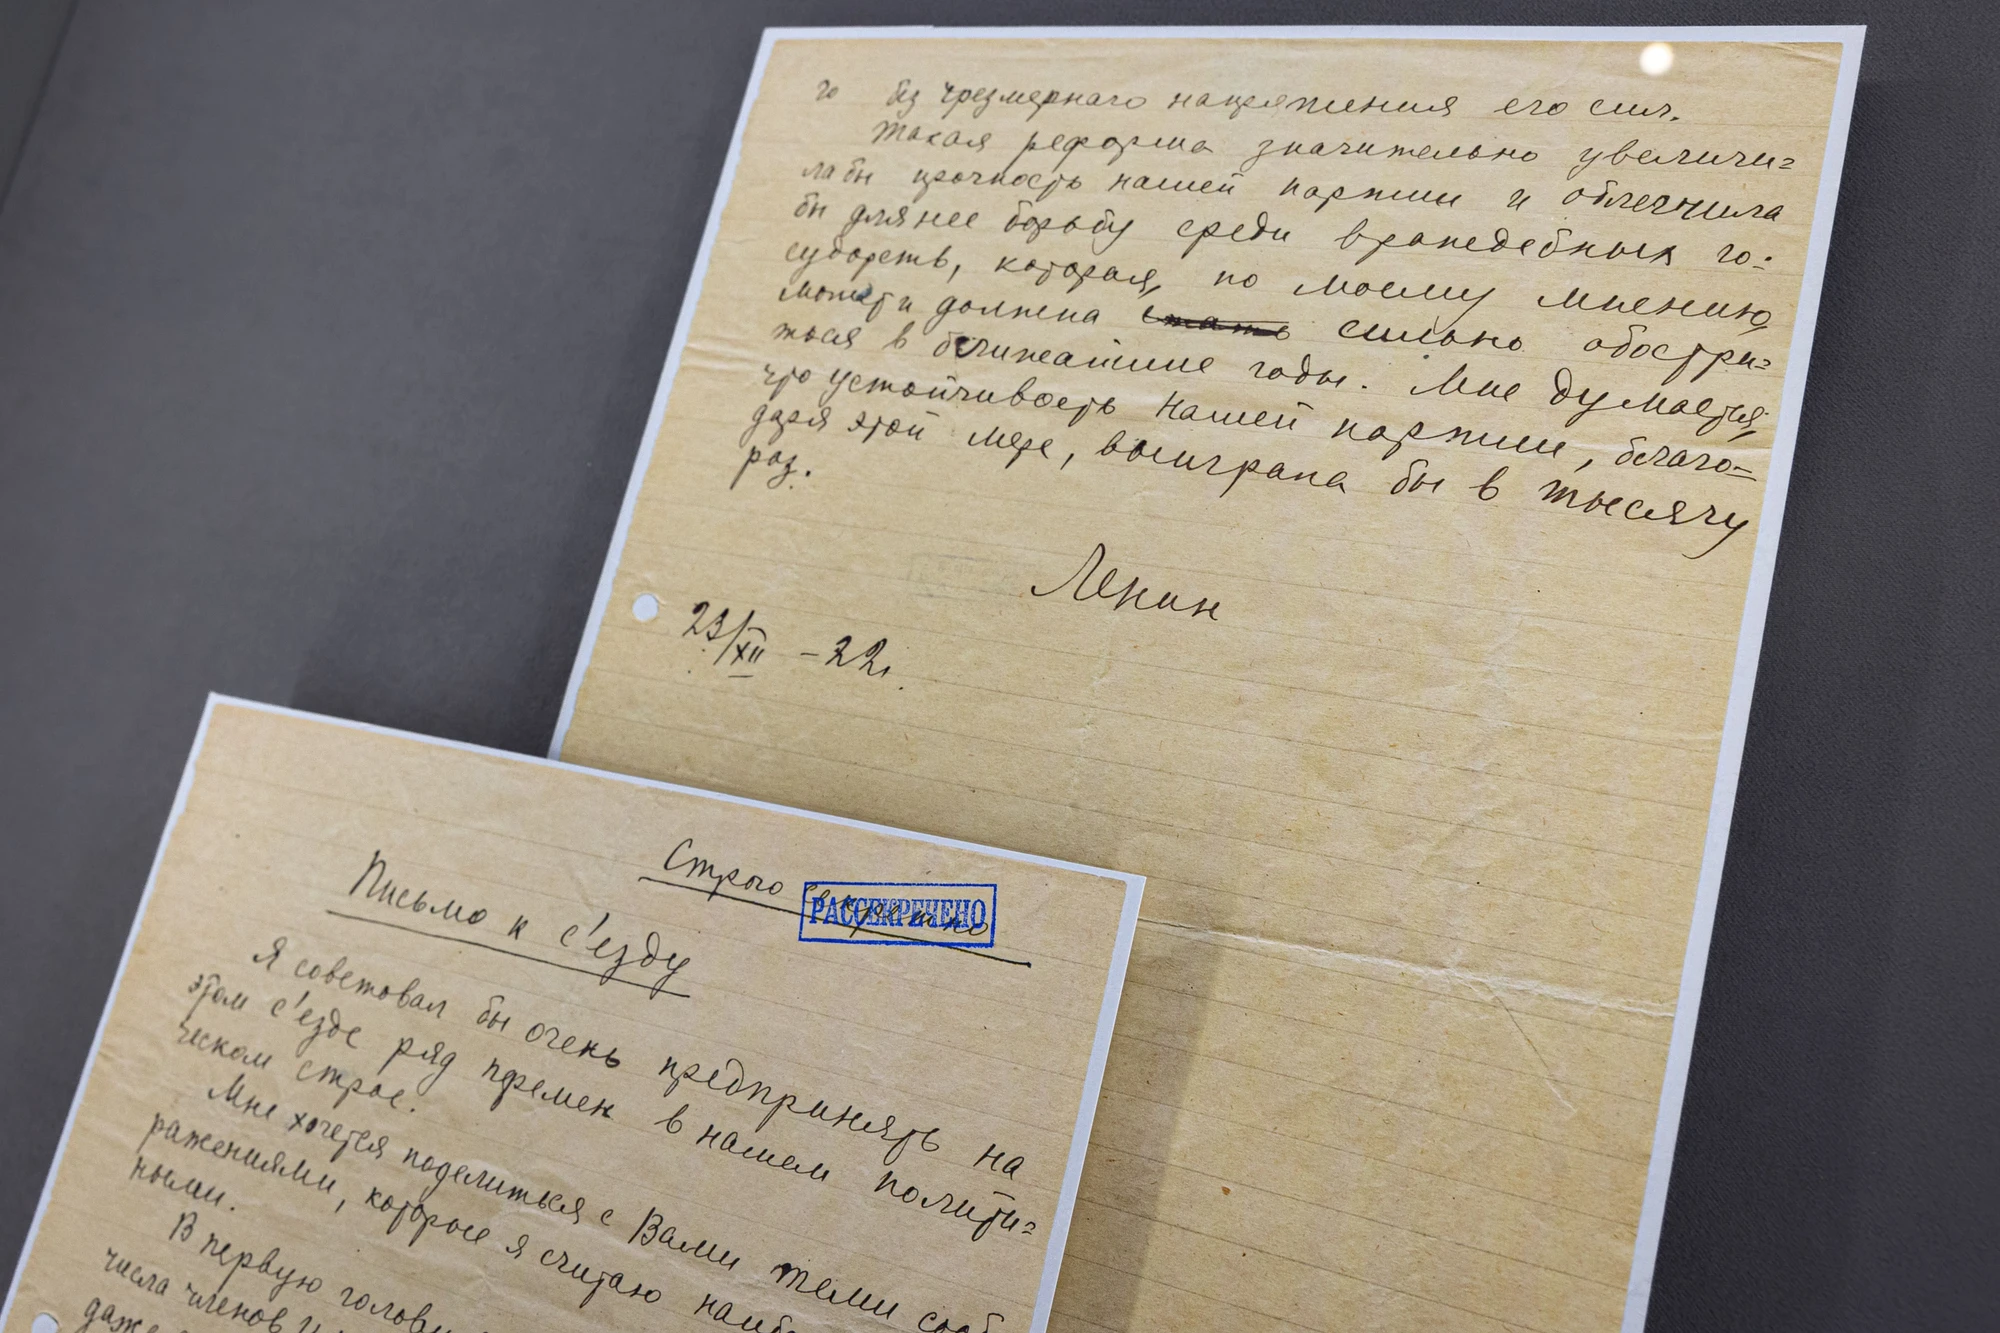 го без чрезмернаго напряжения его сил.
Такая реформа значительно увеличи=
ла бы прочность нашей партии и облегчила
бы для нее борьбу среди враждебных го=
сударств, которая, по моему мнению,
может и должна стать сильно обостри=
ться в ближайшие годы. Мне думается,
что устойчивость нашей партии, благо=
даря этой мере, выиграла бы в тысячу
раз.
Ленин
23/XII - 22г.
Строго секретно
РАССЕКРЕЧЕНО
Письмо к с'езду
Я советовал бы очень предпринять на
этом с'езде ряд перемен в нашем полити=
ческом строе.
Мне хочется поделиться с Вами теми сооб
ражениями, которые я считаю наибо
ными.
В первую голову
числа членов
даже